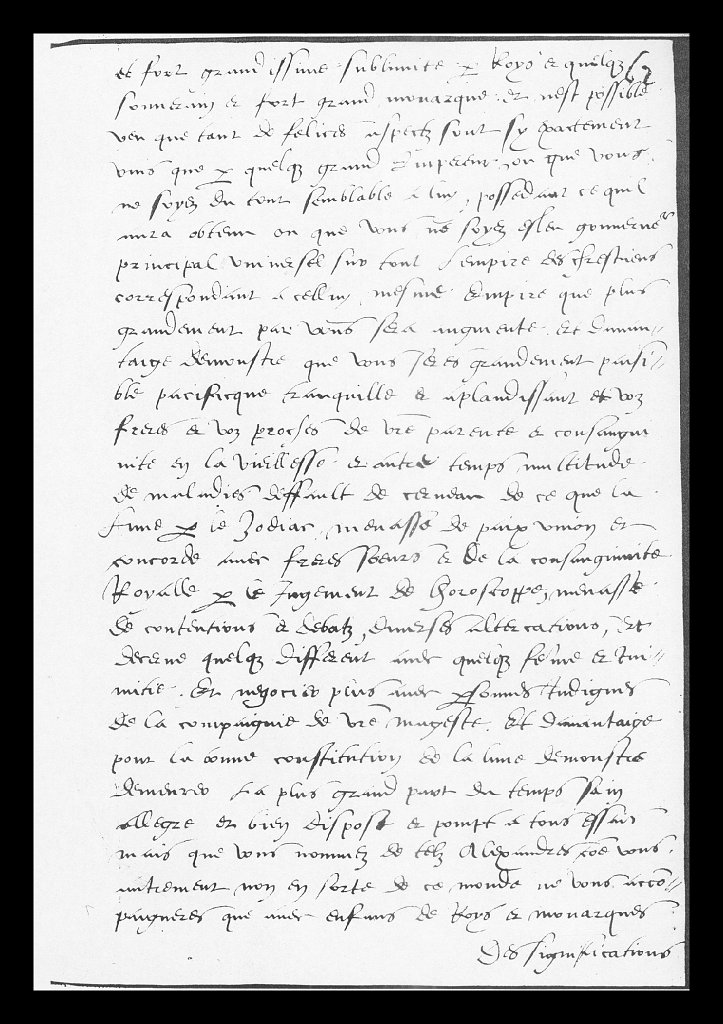 et fort grandissime sublimite p Roys et quelqz 67
souuerain et fort grand monarque et nest possible
veu que tant de felices aspectz sont sy exactement
unis que p quelqz grand Empereur ou que vous
ne soyez du tout semblable a luy, possedant ce quil
aura obtenu ou que vous ne soyez esleu gouuerneur
principal vniuersel sur tout lempire des chrestiens
correspondant a celluy mesme Empire que plus
grandement par vous sera augmente. Et dauan-
taige demonstre que vous seres grandement paisi-
ble pacificque tranquille et aplandissant et voz
freres et voz proches de vre parente et consangui
nite en la viellesse et autre temps multitude
de maladies deffault de cerueau de ce que la
Lune p le Zodiac, menasse de paix vnion et
concorde auec freres seeurs et de la consanguinite
Royalle p le Jugement de horoscoppe, menasse
de contentions et debatz, diuerses altercations, et
decerne quelqz different auec quelqz feme et Ini-
mitie. Et negocier plus auec psonnes Indignes
de la compaignie de vre mageste. Et dauantaige
pour la bonne constitution de la lune demonstre
demeurer La plus grand part du temps sain
allegre et bien dispost et pompt a tous essaiz
mais que vous nommez de telz Alexandres coe vous
autrement non en sorte de ce monde ne vous acco-
paigneres que auec enfans de Roys et monarques
Des significations